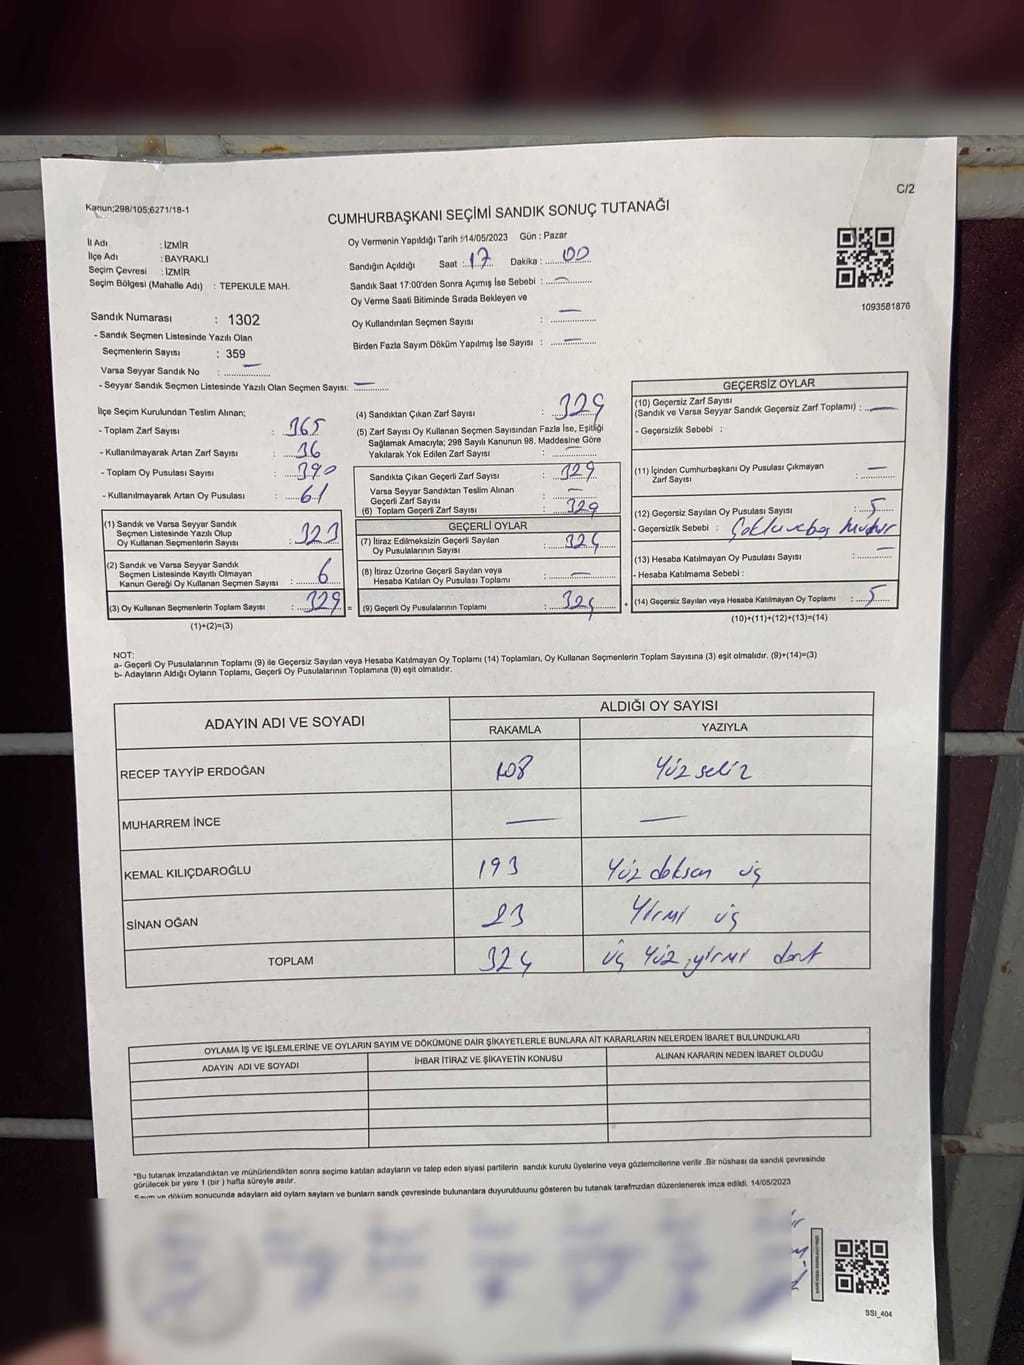 C/2
Kanun;298/105;6271/18-1
CUMHURBAŞKANI SEÇİMİ SANDIK SONUÇ TUTANAĞI
İl Adı : İZMİR
İlçe Adı : BAYRAKLI
Seçim Çevresi : İZMİR
Seçim Bölgesi (Mahalle Adı) : TEPEKULE MAH.
Oy Vermenin Yapıldığı Tarih :14/05/2023 Gün : Pazar
Sandığın Açıldığı Saat : 17 Dakika : 00
Sandık Saat 17:00'den Sonra Açımış İse Sebebi : —
Oy Verme Saati Bitiminde Sırada Bekleyen ve
Oy Kullandırılan Seçmen Sayısı : —
Birden Fazla Sayım Döküm Yapılmış İse Sayısı : —
1093581876
Sandık Numarası : 1302
- Sandık Seçmen Listesinde Yazılı Olan
Seçmenlerin Sayısı : 359
Varsa Seyyar Sandık No : —
- Seyyar Sandık Seçmen Listesinde Yazılı Olan Seçmen Sayısı: —
İlçe Seçim Kurulundan Teslim Alınan;
- Toplam Zarf Sayısı : 365
- Kullanılmayarak Artan Zarf Sayısı : 36
- Toplam Oy Pusulası Sayısı : 390
- Kullanılmayarak Artan Oy Pusulası : 61
(1) Sandık ve Varsa Seyyar Sandık
Seçmen Listesinde Yazılı Olup
Oy Kullanan Seçmenlerin Sayısı : 323
(2) Sandık ve Varsa Seyyar Sandık
Seçmen Listesinde Kayıtlı Olmayan
Kanun Gereği Oy Kullanan Seçmen Sayısı : 6
(3) Oy Kullanan Seçmenlerin Toplam Sayısı : 329 =
(1)+(2)=(3)
(4) Sandıktan Çıkan Zarf Sayısı : 329
(5) Zarf Sayısı Oy Kullanan Seçmen Sayısından Fazla İse, Eşitliği
Sağlamak Amacıyla; 298 Sayılı Kanunun 98. Maddesine Göre
Yakılarak Yok Edilen Zarf Sayısı : —
Sandıkta Çıkan Geçerli Zarf Sayısı : 329
Varsa Seyyar Sandıktan Teslim Alınan
Geçerli Zarf Sayısı : —
(6) Toplam Geçerli Zarf Sayısı : 329
GEÇERLİ OYLAR
(7) İtiraz Edilmeksizin Geçerli Sayılan
Oy Pusulalarının Sayısı : 324
(8) İtiraz Üzerine Geçerli Sayılan veya
Hesaba Katılan Oy Pusulası Toplamı : —
(9) Geçerli Oy Pusulalarının Toplamı : 324 +
GEÇERSİZ OYLAR
(10) Geçersiz Zarf Sayısı
(Sandık ve Varsa Seyyar Sandık Geçersiz Zarf Toplamı) : —
- Geçersizlik Sebebi :
(11) İçinden Cumhurbaşkanı Oy Pusulası Çıkmayan
Zarf Sayısı : —
(12) Geçersiz Sayılan Oy Pusulası Sayısı : 5
- Geçersizlik Sebebi :
(13) Hesaba Katılmayan Oy Pusulası Sayısı : —
- Hesaba Katılmama Sebebi :
(14) Geçersiz Sayılan veya Hesaba Katılmayan Oy Toplamı : 5
(10)+(11)+(12)+(13)=(14)
NOT:
a- Geçerli Oy Pusulalarının Toplamı (9) ile Geçersiz Sayılan veya Hesaba Katılmayan Oy Toplamı (14) Toplamları, Oy Kullanan Seçmenlerin Toplam Sayısına (3) eşit olmalıdır. (9)+(14)=(3)
b- Adayların Aldığı Oyların Toplamı, Geçerli Oy Pusulalarının Toplamına (9) eşit olmalıdır.
ADAYIN ADI VE SOYADI
ALDIĞI OY SAYISI
RAKAMLA YAZIYLA
RECEP TAYYİP ERDOĞAN 108 Yüz sekiz
MUHARREM İNCE — —
KEMAL KILIÇDAROĞLU 193 Yüz doksan üç
SİNAN OĞAN 23 Yirmi üç
TOPLAM 324 üç yüz yirmi dört
OYLAMA İŞ VE İŞLEMLERİNE VE OYLARIN SAYIM VE DÖKÜMÜNE DAİR ŞİKAYETLERLE BUNLARA AİT KARARLARIN NELERDEN İBARET BULUNDUKLARI
ADAYIN ADI VE SOYADI İHBAR İTİRAZ VE ŞİKAYETİN KONUSU ALINAN KARARIN NEDEN İBARET OLDUĞU
*Bu tutanak imzalandıktan ve mühürlendikten sonra seçime katılan adayların ve talep eden siyasi partilerin sandık kurulu üyelerine veya gözlemcilerine verilir .Bir nüshası da sandık çevresinde
görülecek bir yere 1 (bir ) hafta süreyle asılır.
Sayım ve döküm sonucunda adayların ald oyların sayların ve bunların sandk çevresinde bulunanlara duyurulduunu gösteren bu tutanak tarafmzdan düzenlenerek imza edildi. 14/05/2023
SSI_404